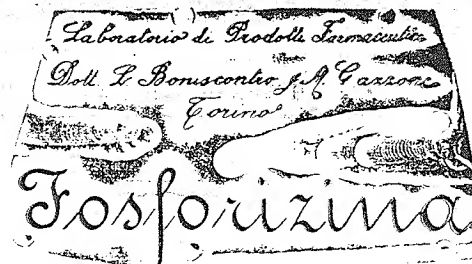 Laboratorio di Prodotti Farmaceutici
Dott. L. Boniscontro & A. Gazzone
Torino
Fosforizina